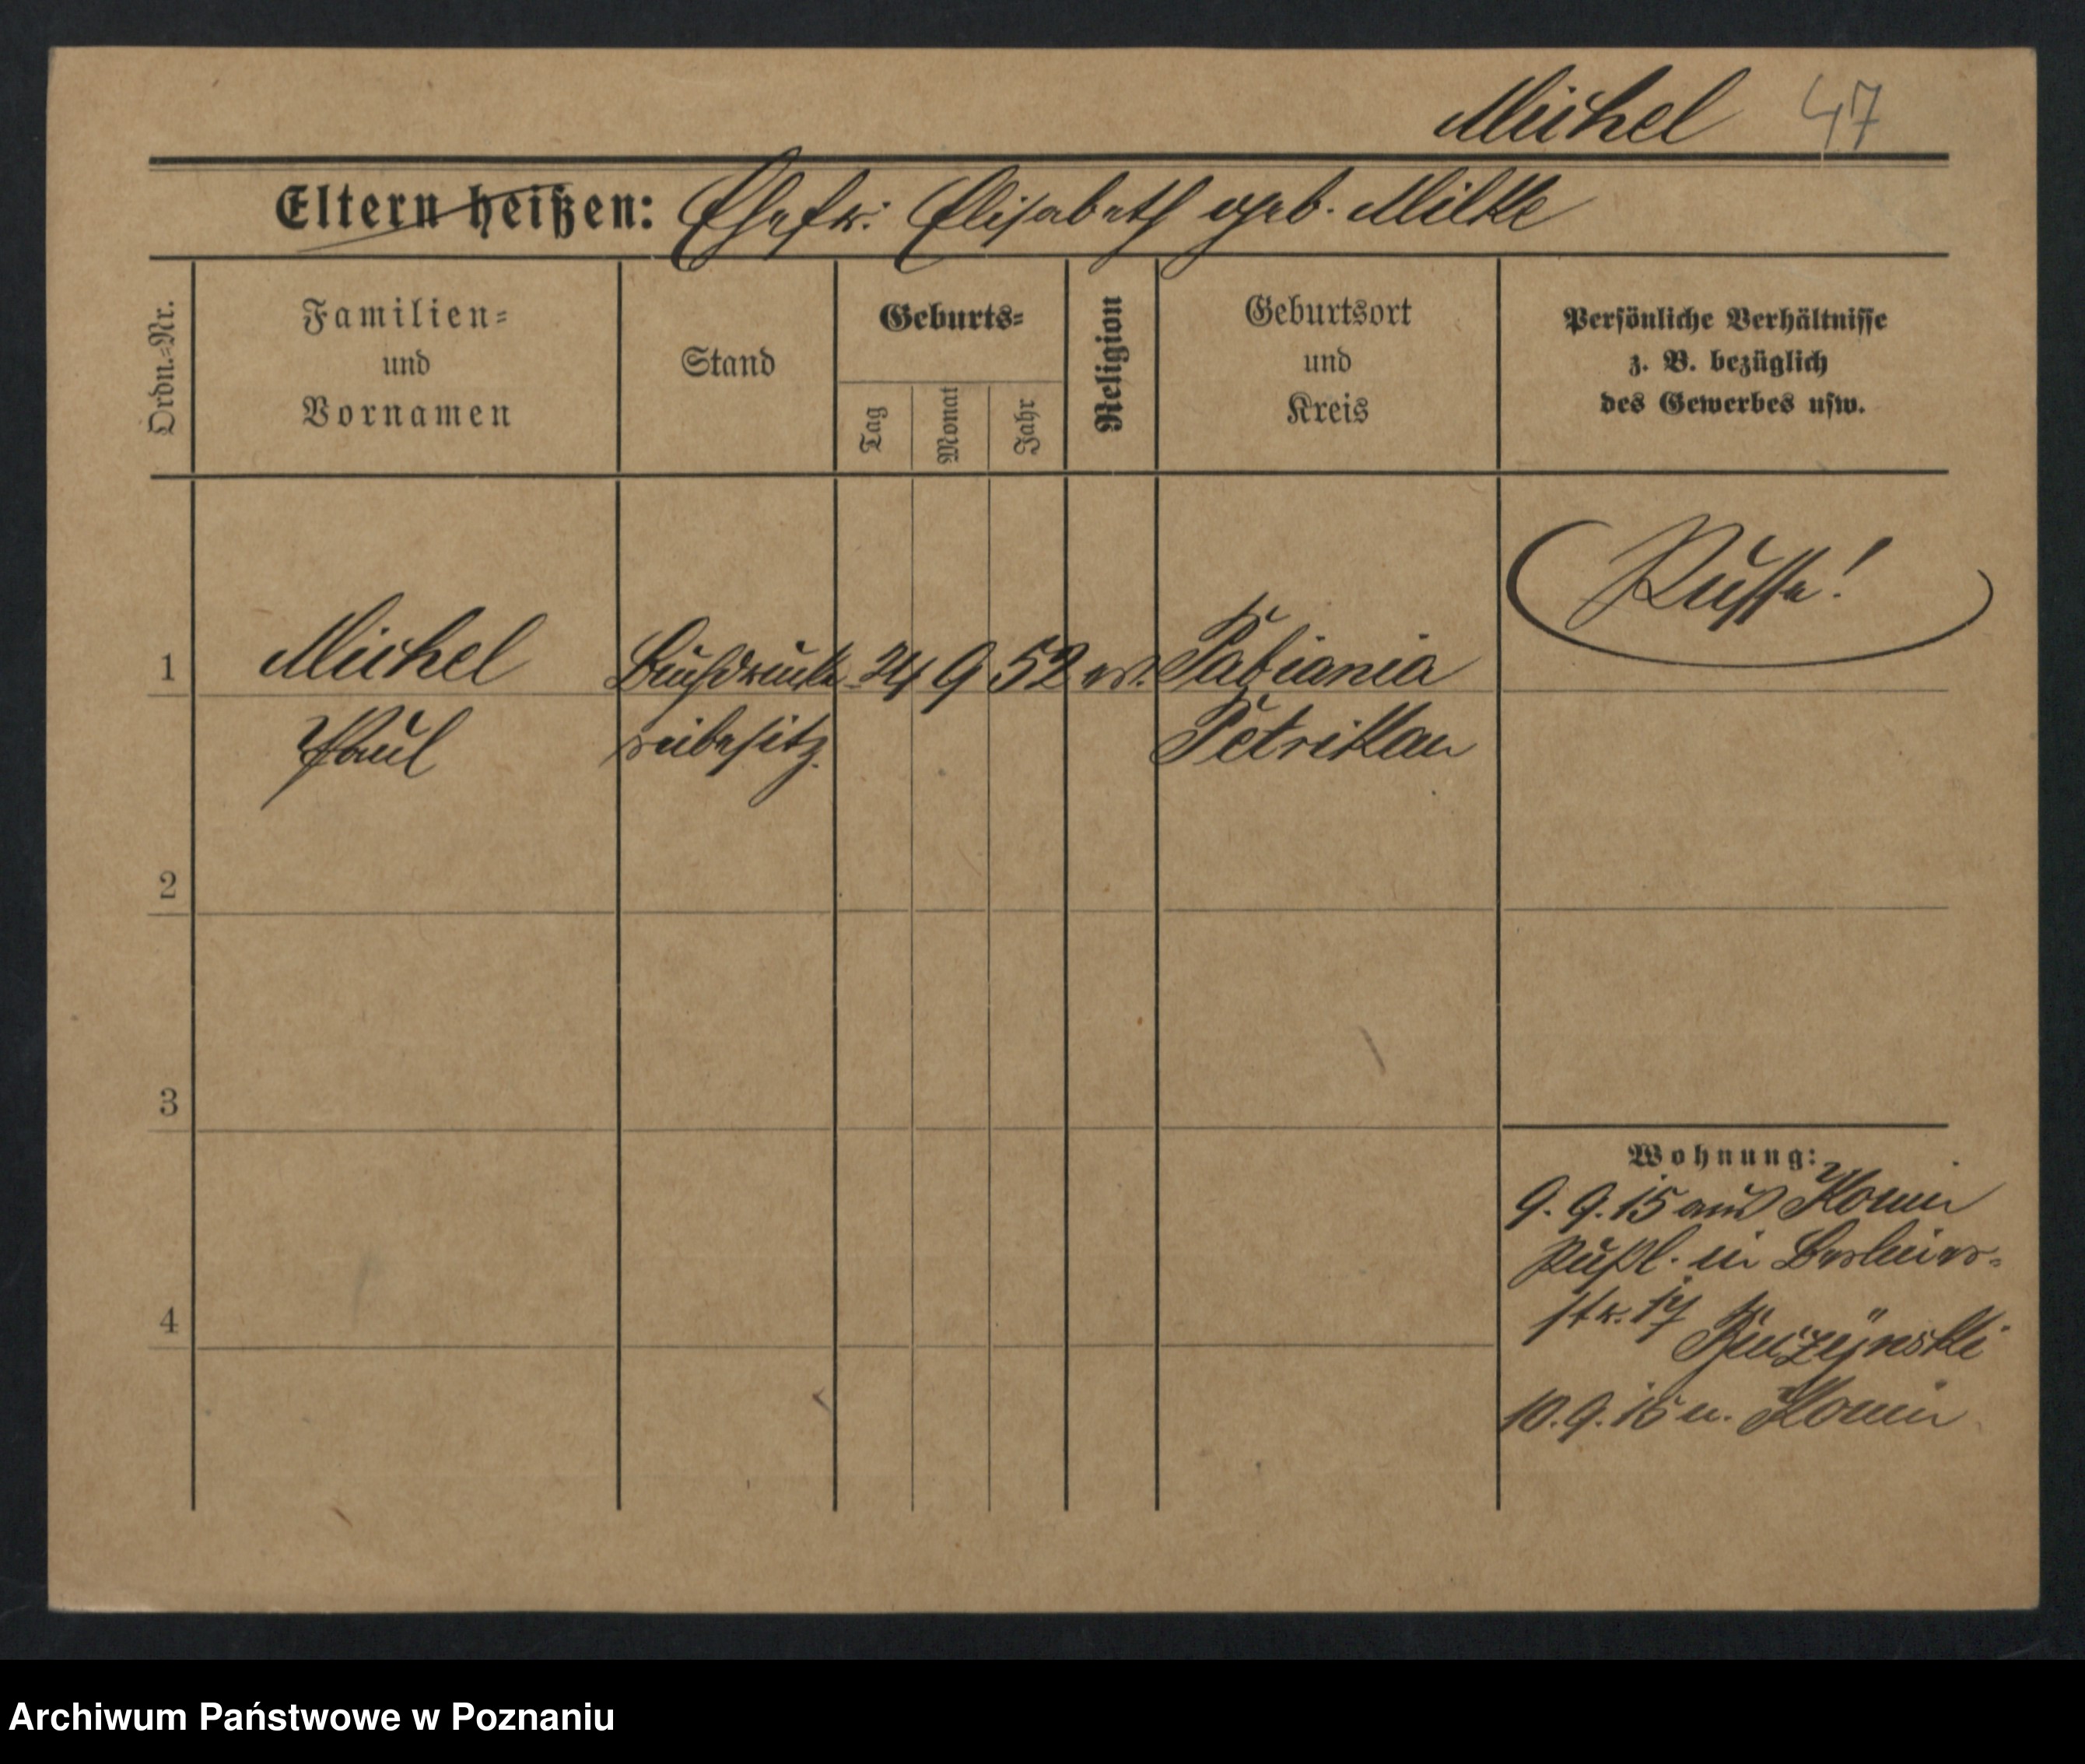 Michel 47
Eltern heißen: Ehefr. Elisabeth geb. Milke
Ordn.-Nr.
Familien-
und
Vornamen
Stand
Geburts-
Tag
Monat
Jahr
Religion
Geburtsort
und
Kreis
Persönliche Verhältnisse
z. B. bezüglich
des Gewerbes usw.
Russe!
1 Michel Buchdrucke 24 9 52 ev. Pabiania
Paul reibesitz. Petrikau
2
3
4
Wohnung:
9. 9. 15 aus Konin
in Berliner-
str. 17
10. 9. 15 n. Konin
Archiwum Państwowe w Poznaniu